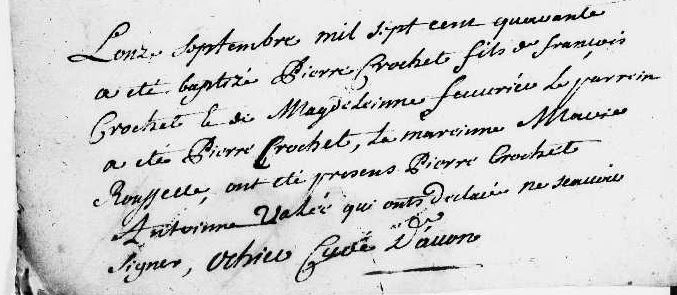 Lonze septembre mil sept cent quarante
a eté baptizé Pierre Crochet fils de françois
Crochet & de Magdeleinne le parrein
a eté Pierre Crochet, la mareinne Marie
Rousselle, ont eté presens Pierre Crochet
Antoinne Valée qui onts declaré ne scavoir
signer, Curé D'avon